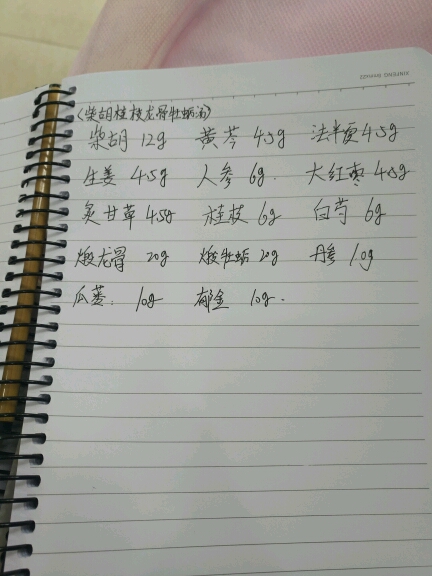 《柴胡桂枝龙骨牡蛎汤》
柴胡 12g 黄芩 4.5g 法半夏 4.5g
生姜 4.5g 人参 6g. 大红枣 4.5g
炙甘草 4.5g 桂枝 6g 白芍 6g
煅龙骨 20g 煅牡蛎 20g 丹参 10g
瓜蒌: 10g 郁金 10g.